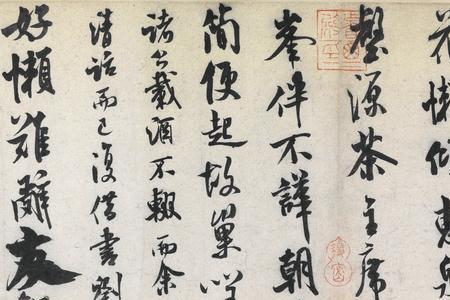 花懶傾惠泉
壑源茶主席
峯伴不譁朝
簡便起故巢嗟
諸公載酒不輟而余
清話而已復借書劉
好懶難辭友